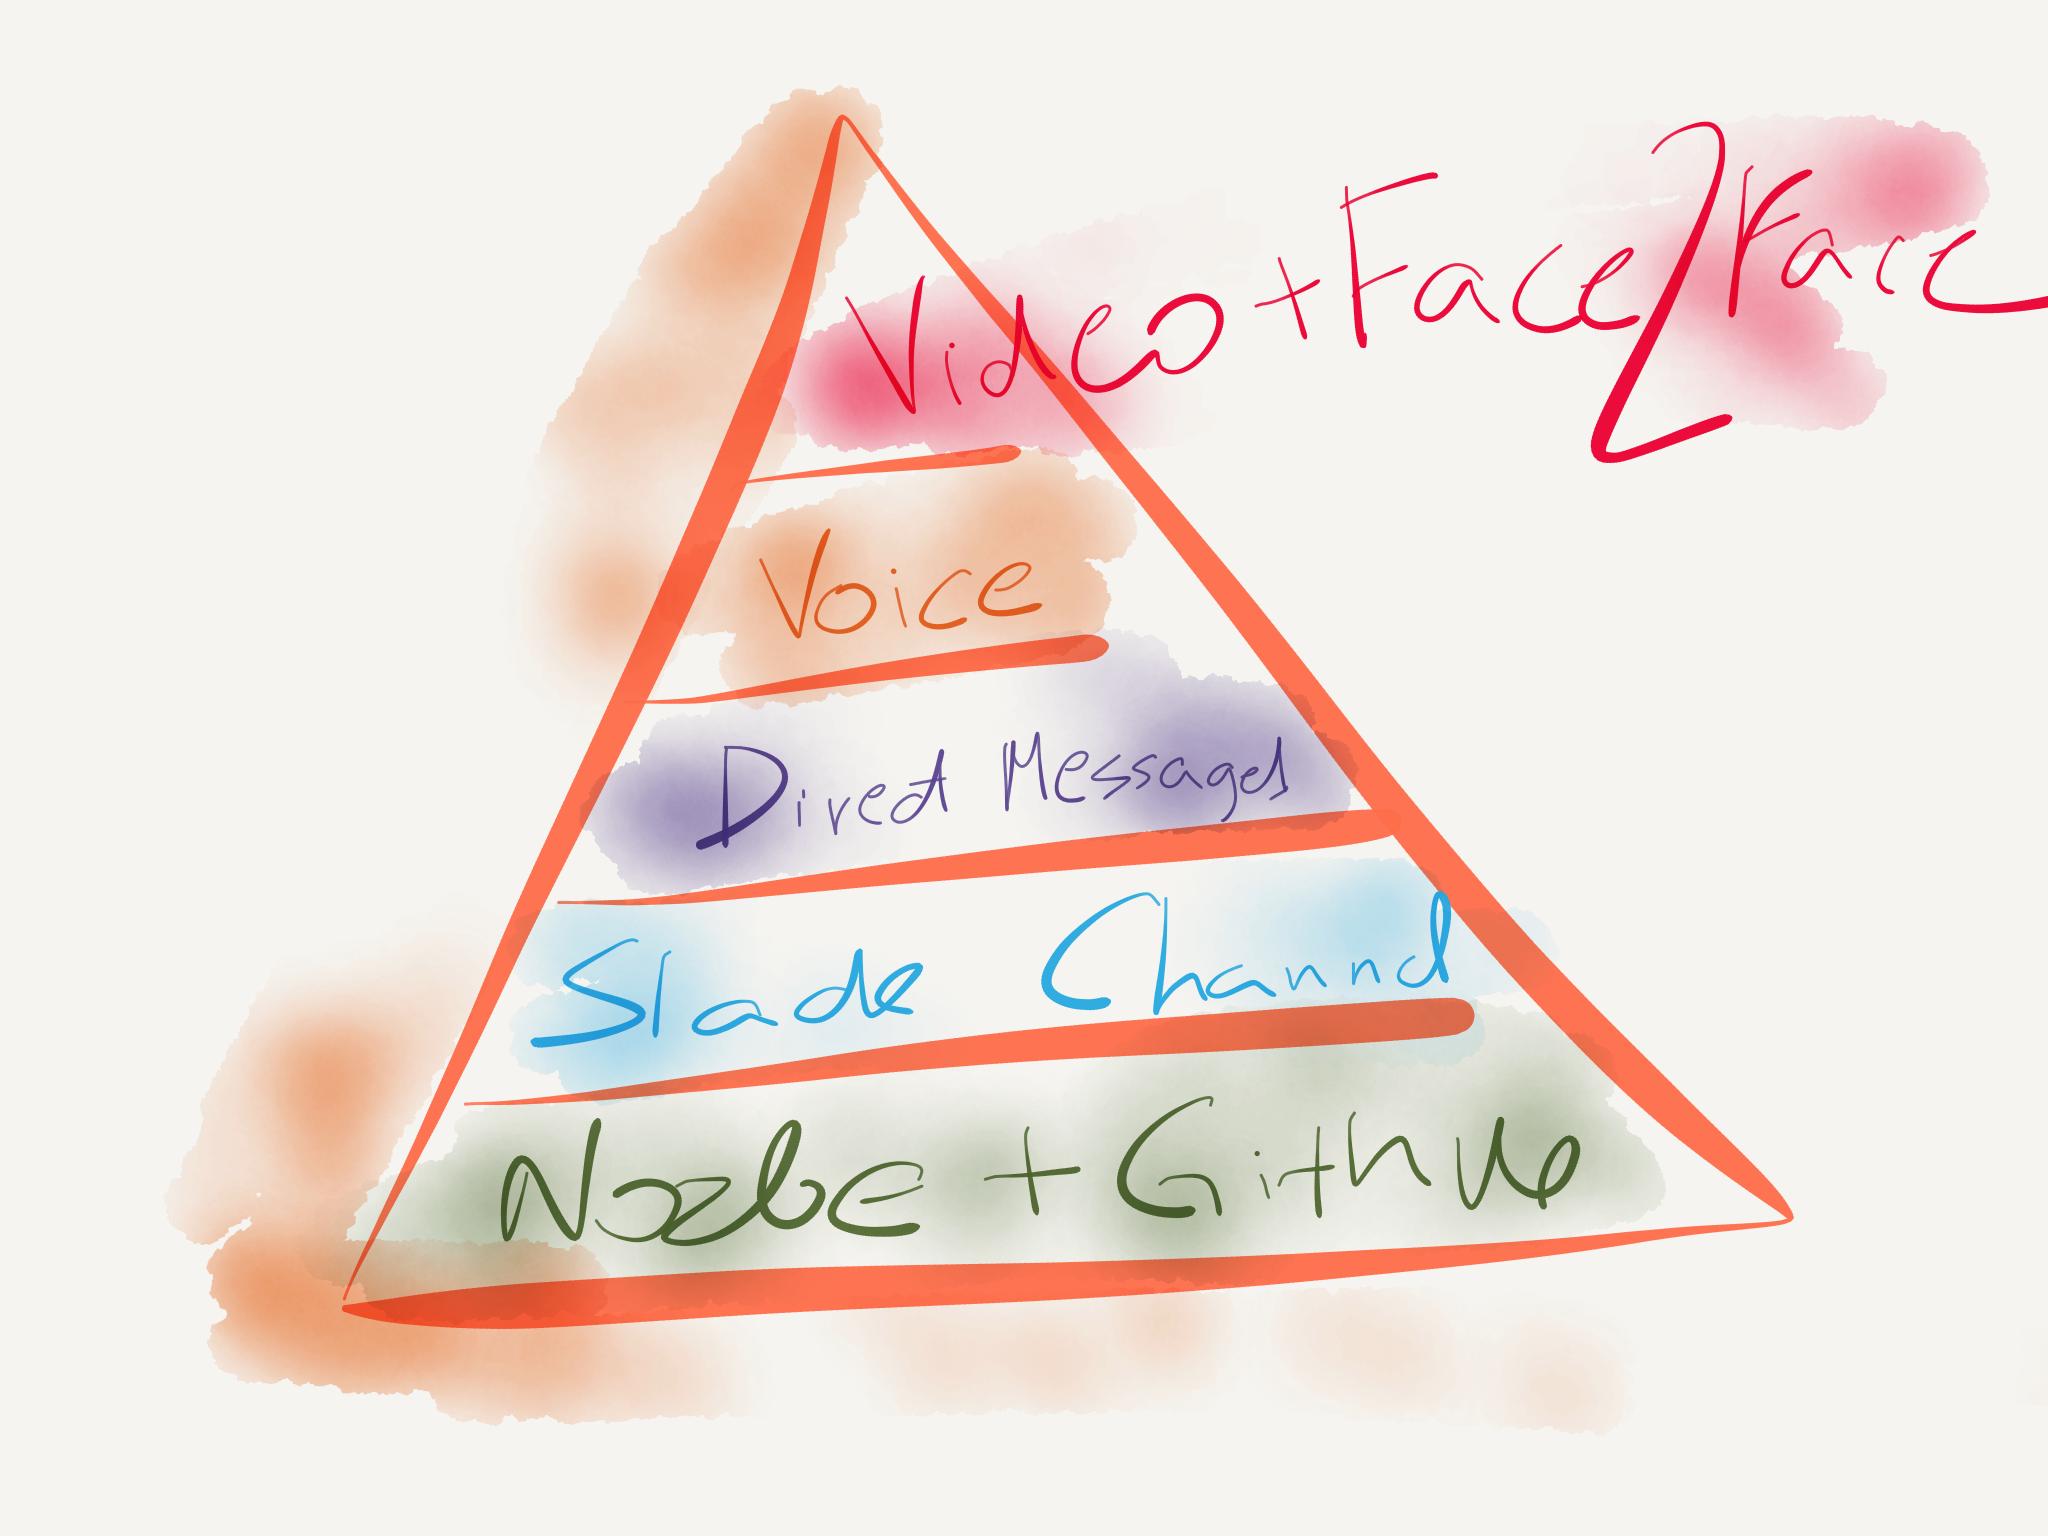 Video + Face 2 Face
Voice
Direct Messages
Slack Channel
Nozbe + Github